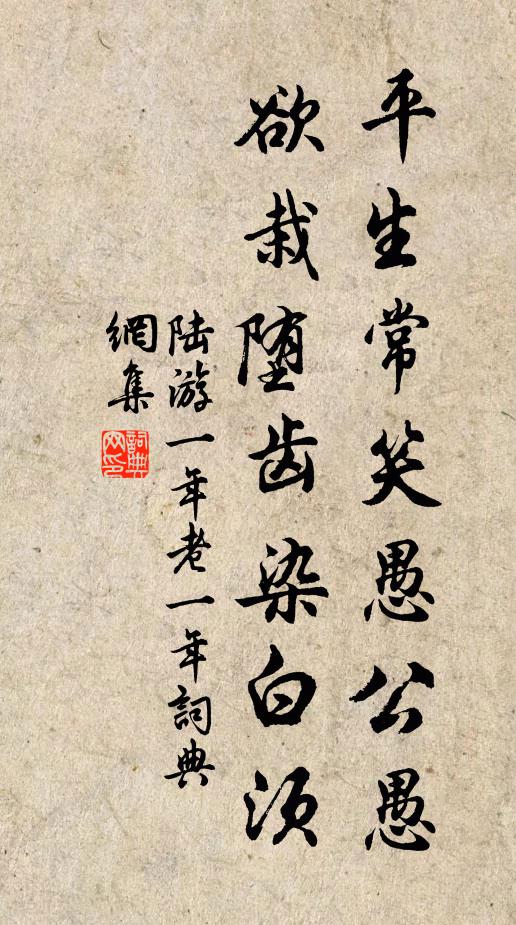 平生常笑愚公愚
欲栽堕齿染白须
陆游一年老一年詞典
網集
詞典
网印